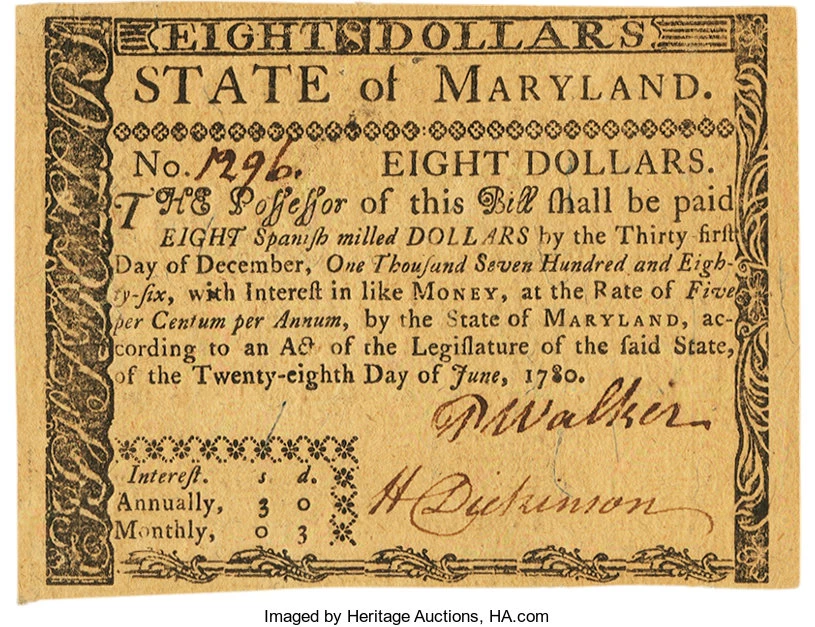 EIGHT 8 DOLLARS
STATE of MARYLAND.
No. 1296. EIGHT DOLLARS.
THE Poſſeſſor of this Bill ſhall be paid
EIGHT Spaniſh milled DOLLARS by the Thirty-firſt
Day of December, One Thouſand Seven Hundred and Eigh-
ty-ſix, with Intereſt in like MONEY, at the Rate of Five
per Centum per Annum, by the State of MARYLAND, ac-
cording to an Act of the Legiſlature of the ſaid State,
of the Twenty-eighth Day of June, 1780.
P Walker
Intereſt. s d.
Annually, 3 0
Monthly, 0 3
H Dickinson
Imaged by Heritage Auctions, HA.com